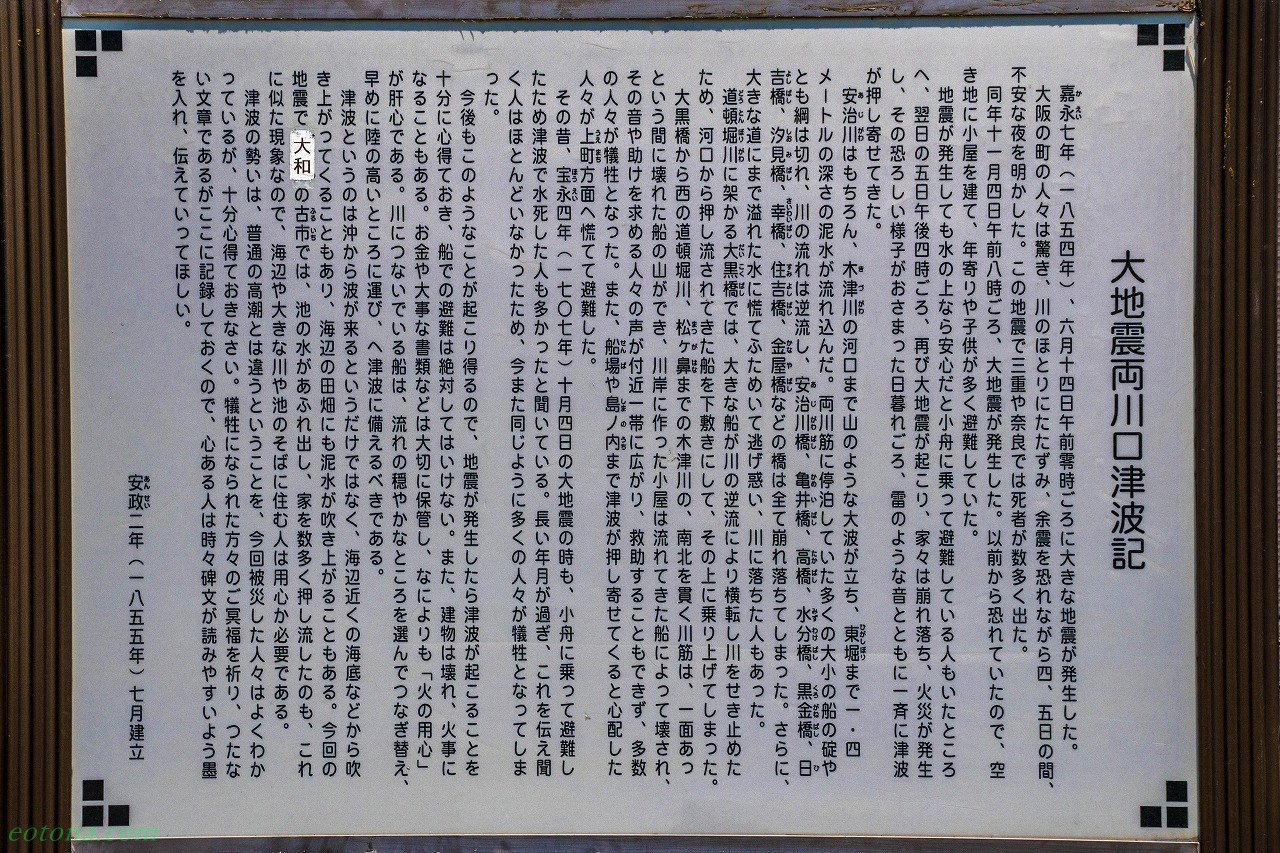 大地震両川口津波記
嘉永七年（一八五四年）、六月十四日午前零時ごろに大きな地震が発生した。
大阪の町の人々は驚き、川のほとりにたたずみ、余震を恐れながら四、五日の間、
不安な夜を明かした。この地震で三重や奈良では死者が数多く出た。
同年十一月四日午前八時ごろ、大地震が発生した。以前から恐れていたので、空
き地に小屋を建て、年寄りや子供が多く避難していた。
地震が発生しても水の上なら安心だと小舟に乗って避難している人もいたところ
へ、翌日の五日午後四時ごろ、再び大地震が起こり、家々は崩れ落ち、火災が発生
し、その恐ろしい様子がおさまった日暮れごろ、雷のような音とともに一斉に津波
が押し寄せてきた。
安治川はもちろん、木津川の河口まで山のような大波が立ち、東堀まで一・四
メートルの深さの泥水が流れ込んだ。両川筋に停泊していた多くの大小の船の碇や
とも綱は切れ、川の流れは逆流し、安治川橋、亀井橋、高橋、水分橋、黒金橋、日
吉橋、汐見橋、幸橋、住吉橋、金屋橋などの橋は全て崩れ落ちてしまった。さらに、
大きな道にまで溢れた水に慌てふためいて逃げ惑い、川に落ちた人もあった。
道頓堀川に架かる大黒橋では、大きな船が川の逆流により横転し川をせき止めた
ため、河口から押し流されてきた船を下敷きにして、その上に乗り上げてしまった。
大黒橋から西の道頓堀川、松ヶ鼻までの木津川の、南北を貫く川筋は、一面あっ
という間に壊れた船の山ができ、川岸に作った小屋は流れてきた船によって壊され、
その音や助けを求める人々の声が付近一帯に広がり、救助することもできず、多数
の人々が犠牲となった。また、船場や島ノ内まで津波が押し寄せてくると心配した
人々が上町方面へ慌てて避難した。
その昔、宝永四年（一七〇七年）十月四日の大地震の時も、小舟に乗って避難し
たため津波で水死した人も多かったと聞いている。長い年月が過ぎ、これを伝え聞
く人はほとんどいなかったため、今また同じように多くの人々が犠牲となってしま
った。
今後もこのようなことが起こり得るので、地震が発生したら津波が起こることを
十分に心得ておき、船での避難は絶対してはいけない。また、建物は壊れ、火事に
なることもある。お金や大事な書類などは大切に保管し、なによりも「火の用心」
が肝心である。川につないでいる船は、流れの穏やかなところを選んでつなぎ替え、
早めに陸の高いところに運び、津波に備えるべきである。
津波というのは沖から波が来るというだけではなく、海辺近くの海底などから吹
き上がってくることもあり、海辺の田畑にも泥水が吹き上がることもある。今回の
地震で大和の古市では、池の水があふれ出し、家を数多く押し流したのも、これ
に似た現象なので、海辺や大きな川や池のそばに住む人は用心が必要である。
津波の勢いは、普通の高潮とは違うということを、今回被災した人々はよくわか
っているが、十分心得ておきなさい。犠牲になられた方々のご冥福を祈り、つたな
い文章であるがここに記録しておくので、心ある人は時々碑文が読みやすいよう墨
を入れ、伝えていってほしい。
安政二年（一八五五年）七月建立
eotona.com